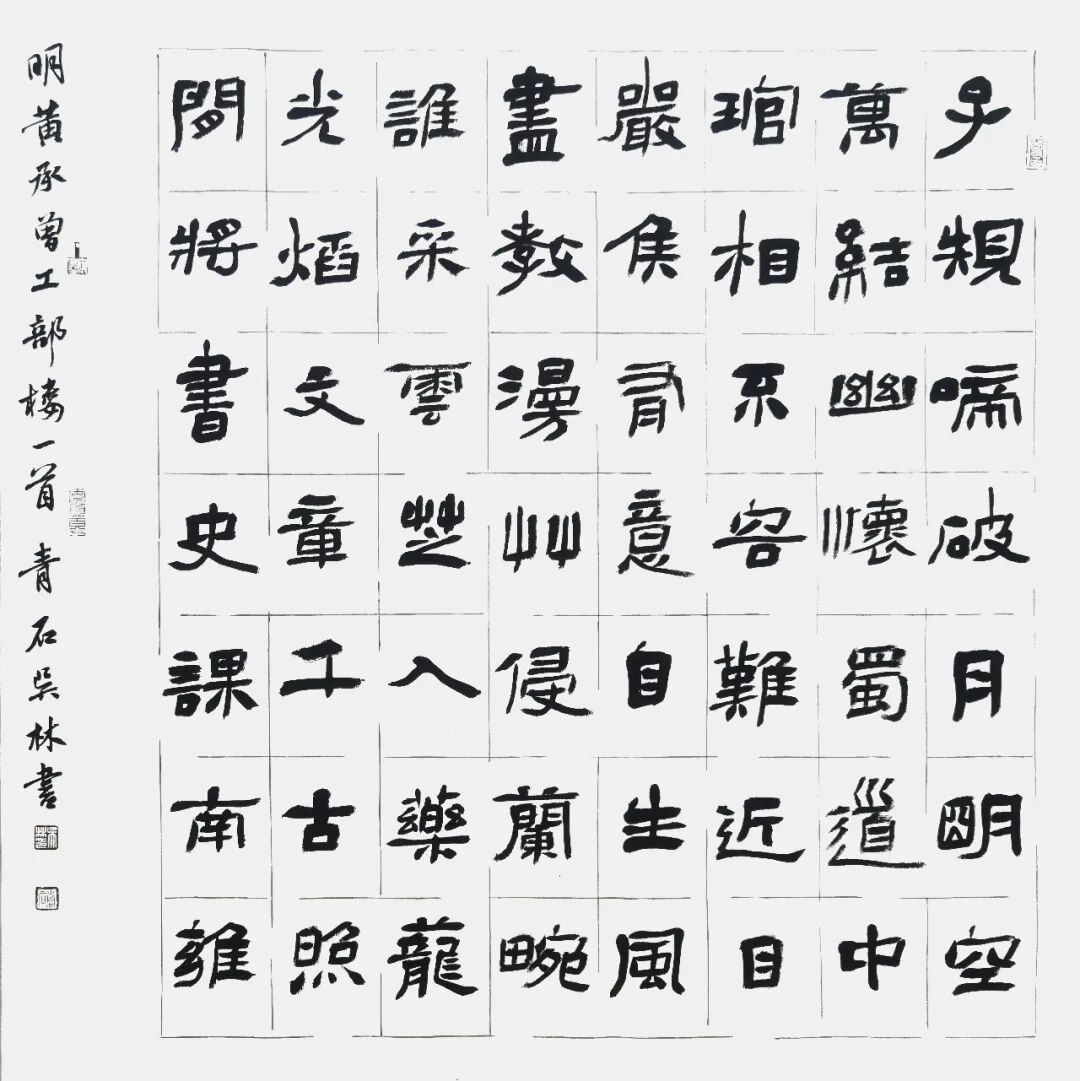 子規啼破月明空
萬結幽懷蜀道中
琯相不容難近目
嚴侯有意自生風
盡教漫艸侵蘭畹
誰采雲芝入藥蘢
光熖文章千古照
閒將書史課南雍
明黄承曾工部樓一首 青石吳林書